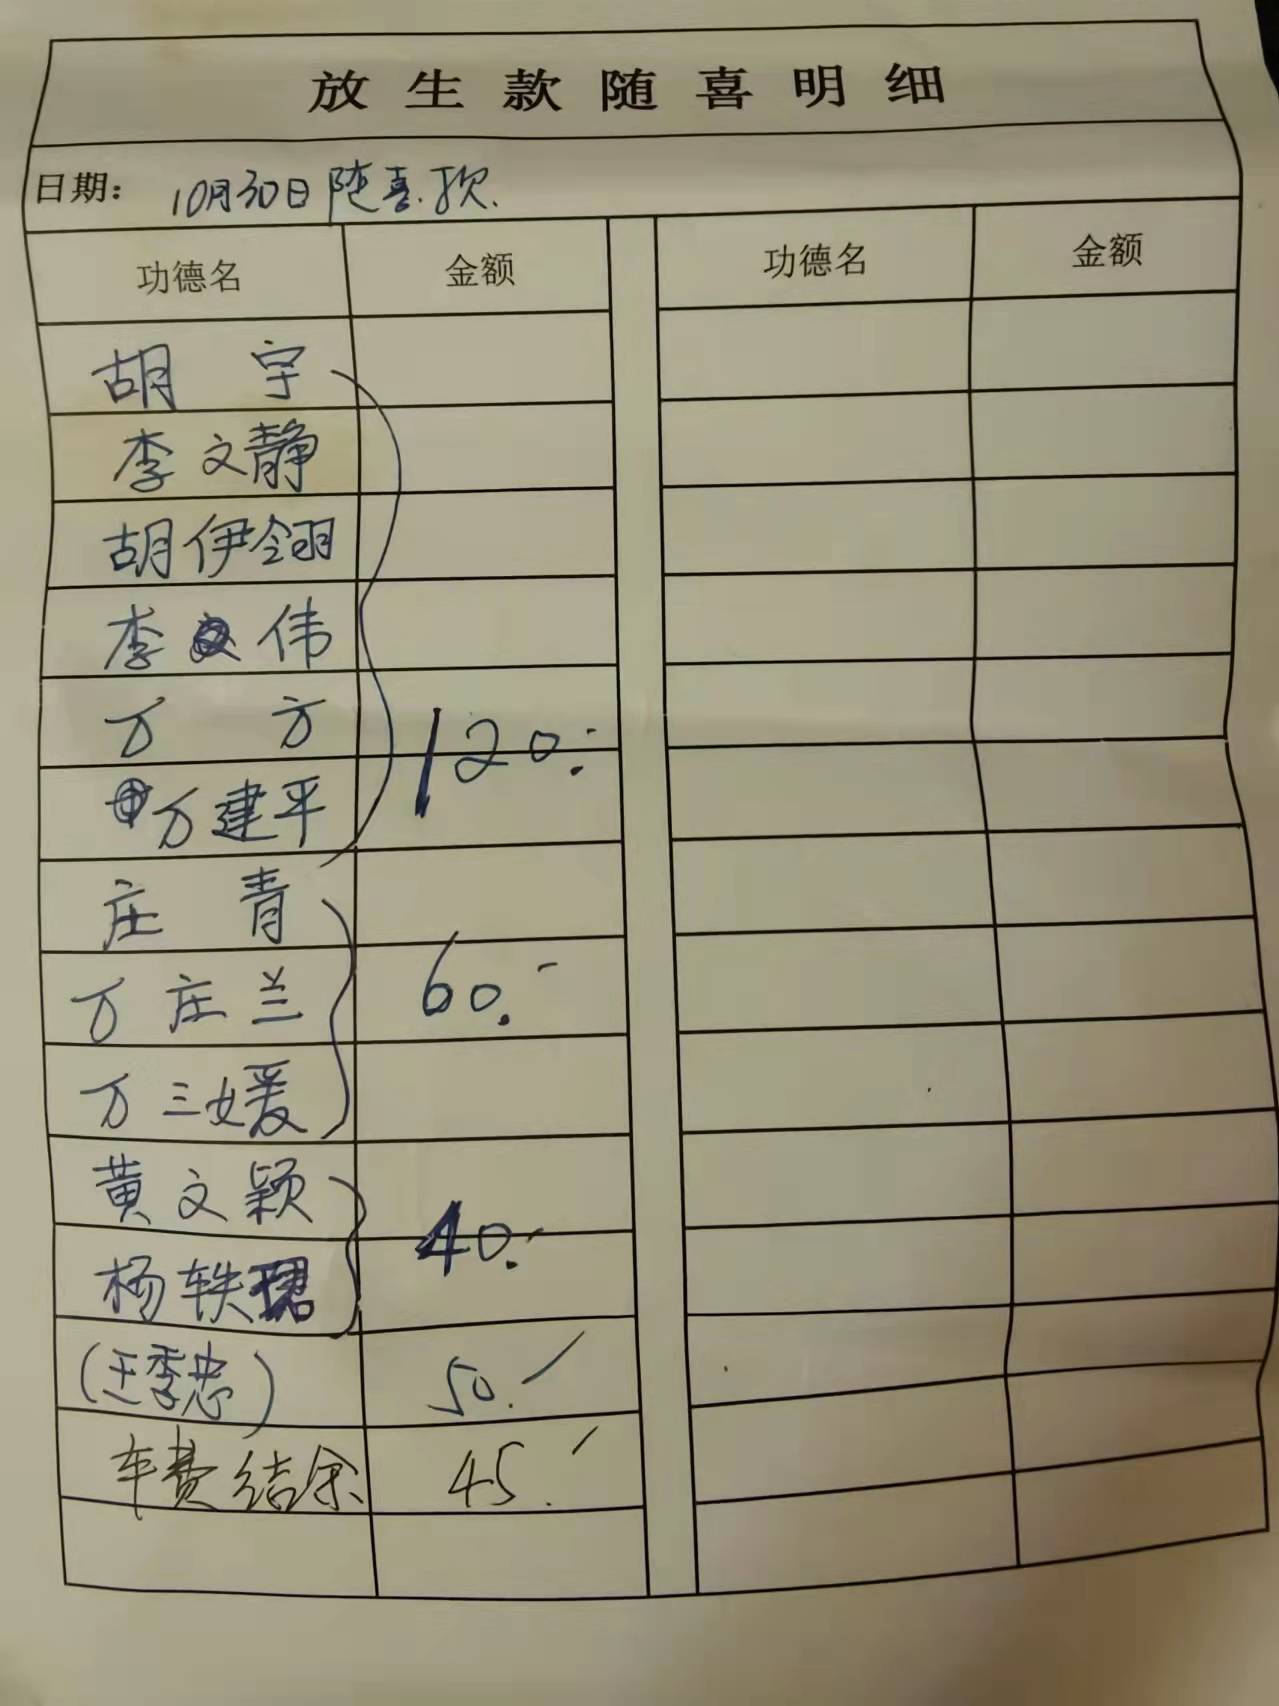 放生款随喜明细
日期: 10月30日随喜.款.
功德名 金额 功德名 金额
胡 宇
李文静
胡伊翎
李 伟
万 方
万建平
120.-
庄 青
万庄兰
60.-
万三媛
黄文颖
杨轶珺
40.-
(王季忠) 50.-
车费结余 45.-